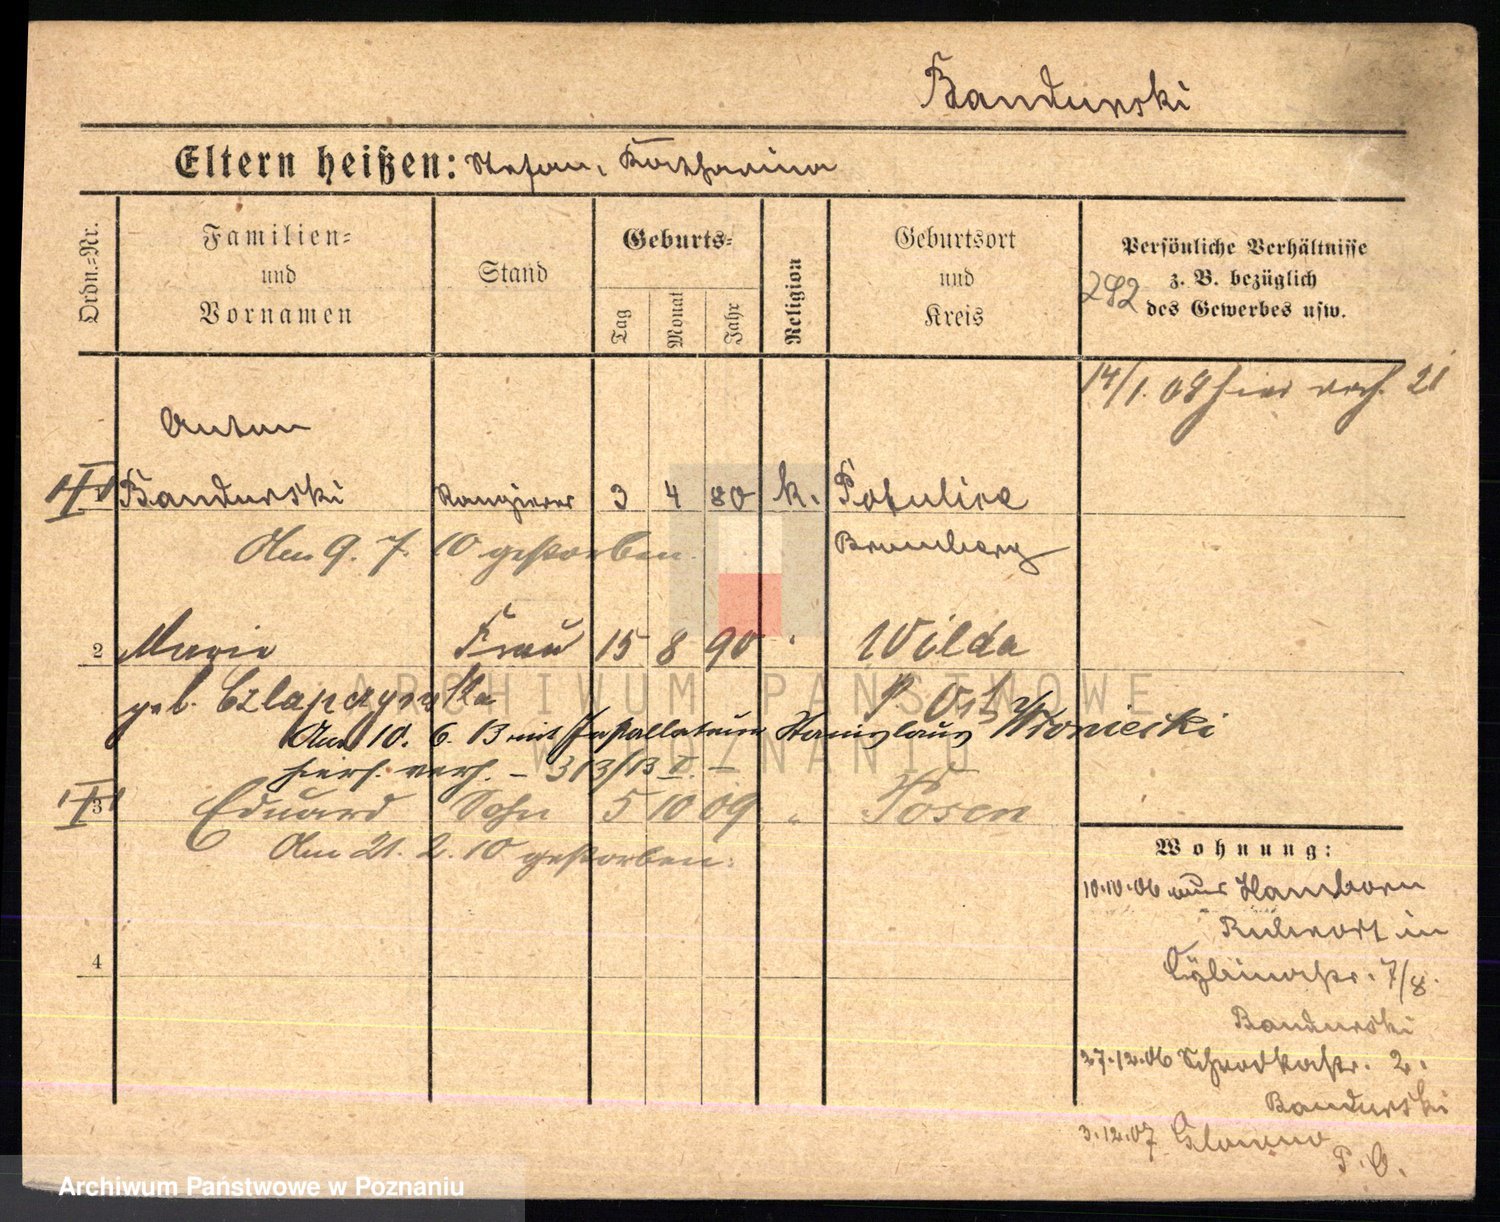 Bandurski
Eltern heißen: Stefan, Katharina
Ordn.-Nr.
Familien-
und
Vornamen
Stand
Geburts-
Tag
Monat
Jahr
Religion
Geburtsort
und
Kreis
Persönliche Verhältnisse
z. B. bezüglich
des Gewerbes usw.
292
14/1. 09 hier verh. 21
Anton
1 Bandurski Rangierer 3 4 80 k. Potulice
Bromberg
Am 9. 7. 10 gestorben.
2 Marie Frau 15 8 90 " Wilda
geb. P. Ost
Am 10. 6. 13 mit Installateur Stanislaus Wroniecki
hiers. verh. – 313/13 I. –
3 Eduard Sohn 5 10 09 " Posen
Am 21. 2. 10 gestorben.
4
Wohnung:
10.10.06 aus Hamborn
Ruhrort in
Cybinastr. 7/8.
Bandurski
27.12.06 Schrodkastr. 2.
Bandurski
3.12.07 Glowno
P. O.
ARCHIWUM PAŃSTWOWE
W POZNANIU
Archiwum Państwowe w Poznaniu